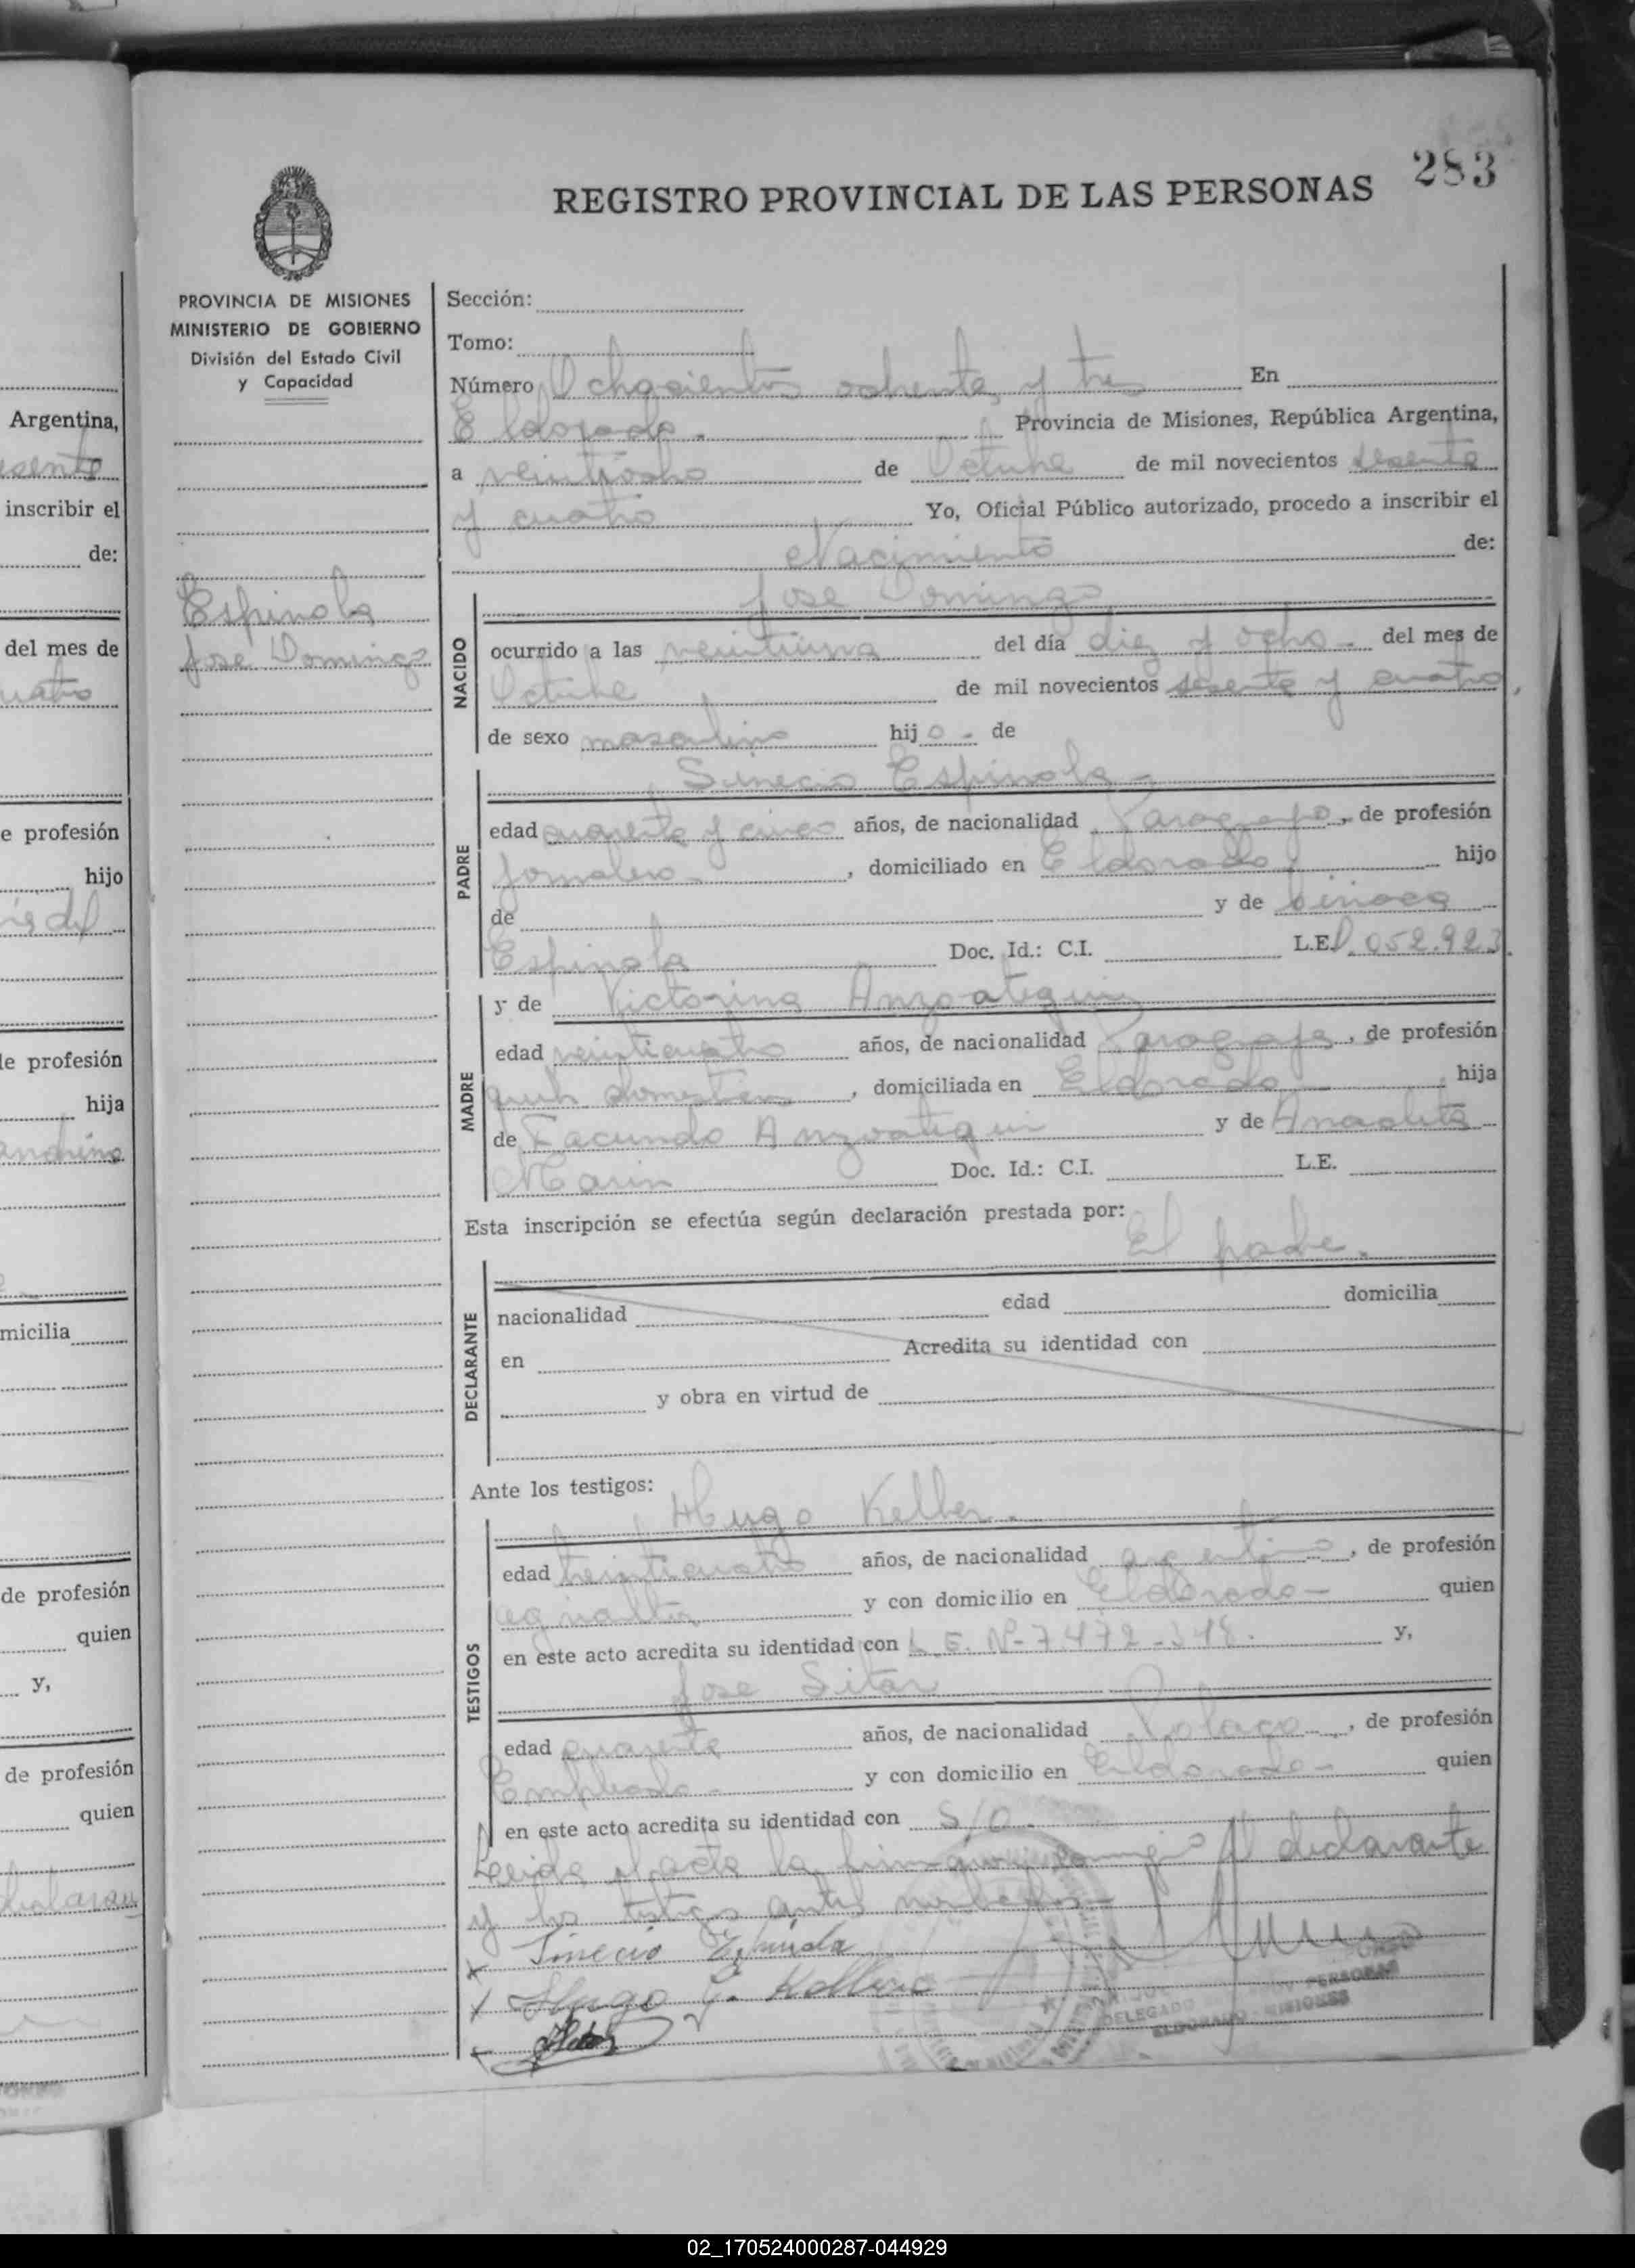 283
REGISTRO PROVINCIAL DE LAS PERSONAS
PROVINCIA DE MISIONES
MINISTERIO DE GOBIERNO
División del Estado Civil
y Capacidad
Espinola
Jose Domingo
Sección:
Tomo:
Número Ochocientos ochenta y tres En
Eldorado. Provincia de Misiones, República Argentina,
a veintiocho de Octubre de mil novecientos sesenta
y cuatro Yo, Oficial Público autorizado, procedo a inscribir el
Nacimiento de:
NACIDO
Jose Domingo
ocurrido a las veintiuna del día diez y ocho - del mes de
Octubre de mil novecientos sesenta y cuatro,
de sexo masculino hijo - de
PADRE
Sinecio Espinola -
edad cuarenta y cinco años, de nacionalidad Paraguayo, de profesión
jornalero - , domiciliado en Eldorado hijo
de y de
Espinola Doc. Id.: C.I. L.E. 052.923
MADRE
y de Victorina Anzoategui
edad veinticuatro años, de nacionalidad Paraguaya, de profesión
queh. domesticos , domiciliada en Eldorado hija
de Facundo Anzoategui y de Anacleta
Marin Doc. Id.: C.I. L.E.
Esta inscripción se efectúa según declaración prestada por:
El padre.
DECLARANTE
nacionalidad edad domicilia
en Acredita su identidad con
y obra en virtud de
Ante los testigos:
TESTIGOS
Hugo Keller.
edad treinticuatro años, de nacionalidad argentino, de profesión
agricultor y con domicilio en Eldorado - quien
en este acto acredita su identidad con L.E. Nº- 7.472.318. y,
Jose Sitar
edad cuarenta años, de nacionalidad Polaco, de profesión
Empleado - y con domicilio en Eldorado - quien
en este acto acredita su identidad con S/D.
Leida el acta la firman conmigo el declarante
y los testigos antes nombrados -
x Sinecio Espinola
x Hugo
x
DELEGADO
ELDORADO MISIONES
Argentina,
inscribir el
de:
del mes de
e profesión
hijo
le profesión
hija
micilia
de profesión
quien
y,
de profesión
quien
02_170524000287-044929